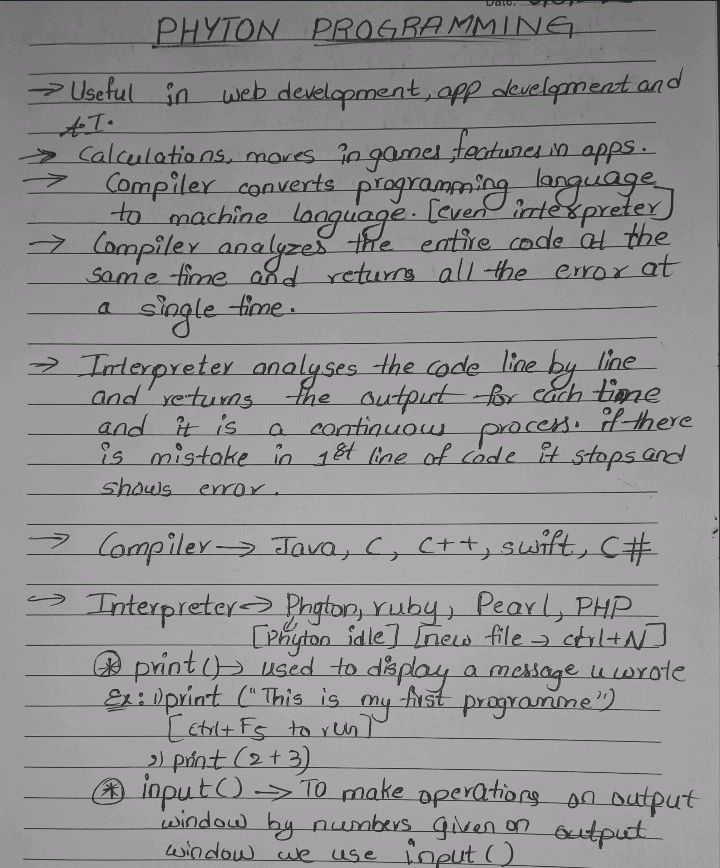 PHYTON PROGRAMMING
→ Useful in web development, app development and
A.I.
→ Calculations, moves in games, features in apps.
→ Compiler converts programming language
to machine language. [even interpreter]
→ Compiler analyzes the entire code at the
same time and returns all the error at
a single time.
→ Interpreter analyses the code line by line
and returns the output for each time
and it is a continuous process. if there
is mistake in 1st line of code it stops and
shows error.
→ Compiler → Java, C, C++, swift, C#
→ Interpreter → Phyton, ruby, Pearl, PHP
[Phyton idle] [new file → ctrl+N]
* print() → used to display a message u wrote
Ex: 1) print ("This is my first programme")
[ctrl+F5 to run]
2) print (2+3)
* input() → To make operations on output
window by numbers given on output
window we use input()